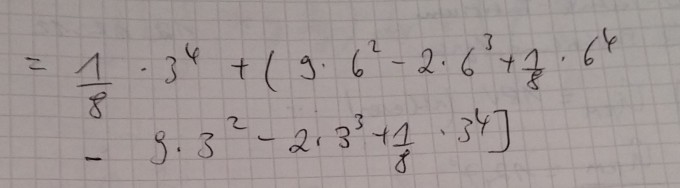 = 1/8 · 3⁴ + ( 9 · 6² - 2 · 6³ + 1/8 · 6⁴
- 9 · 3² - 2 · 3³ + 1/8 · 3⁴ ]